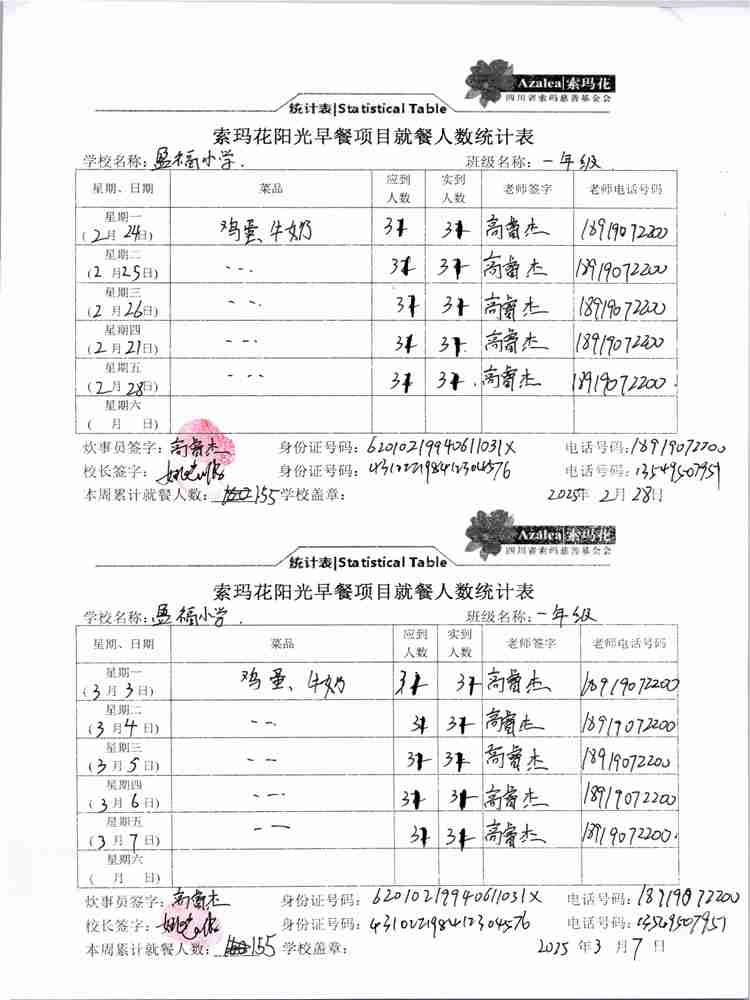 Azalea|索玛花
四川省索玛慈善基金会
统计表|Statistical Table
索玛花阳光早餐项目就餐人数统计表
学校名称：盈福小学. 班级名称：一年级
星期、日期 菜品 应到人数 实到人数 老师签字 老师电话号码
星期一 (2月24日) 鸡蛋、牛奶 31 31 高睿杰 18919072200
星期二 (2月25日) 31 31 高睿杰 18919072200
星期三 (2月26日) 31 31 高睿杰 18919072200
星期四 (2月21日) 31 31 高睿杰 18919072200
星期五 (2月28日) 31 31 高睿杰 18919072200
星期六 ( 月 日)
炊事员签字：高睿杰 身份证号码：62010219940611031X 电话号码：18919072200
校长签字： 身份证号码：431022198412304576 电话号码：13549507951
本周累计就餐人数：155 学校盖章： 2025年2月28日
Azalea|索玛花
四川省索玛慈善基金会
统计表|Statistical Table
索玛花阳光早餐项目就餐人数统计表
学校名称：盈福小学. 班级名称：一年级
星期、日期 菜品 应到人数 实到人数 老师签字 老师电话号码
星期一 (3月3日) 鸡蛋、牛奶 31 31 高睿杰 18919072200
星期二 (3月4日) 31 31 高睿杰 18919072200
星期三 (3月5日) 31 31 高睿杰 18919072200
星期四 (3月6日) 31 31 高睿杰 18919072200
星期五 (3月7日) 31 31 高睿杰 18919072200
星期六 ( 月 日)
炊事员签字：高睿杰 身份证号码：62010219940611031X 电话号码：18919072200
校长签字： 身份证号码：431022198412304576 电话号码：13549507951
本周累计就餐人数：155 学校盖章： 2025年3月7日